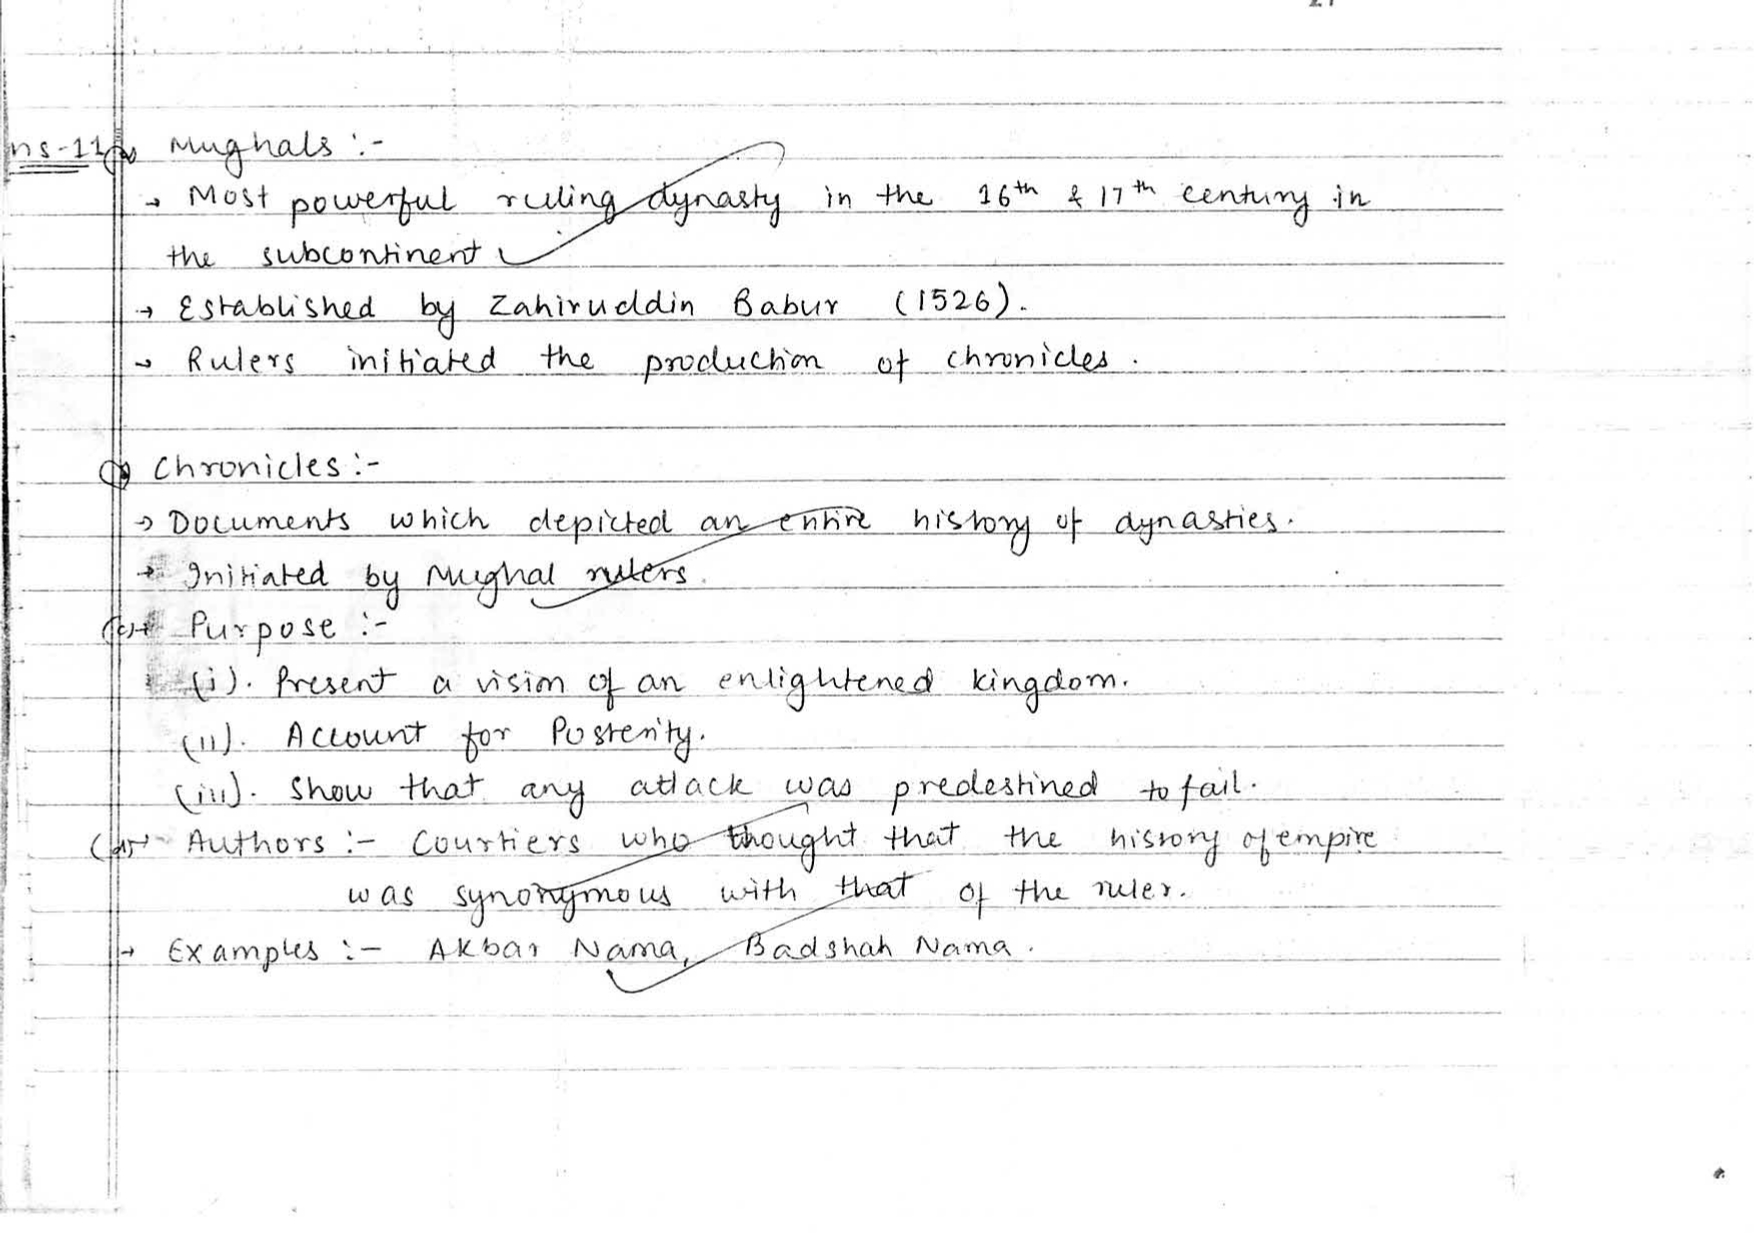 ns-11 Mughals :-
→ Most powerful ruling dynasty in the 16th & 17th century in
the subcontinent
→ Established by Zahiruddin Babur (1526).
→ Rulers initiated the production of chronicles.
Chronicles :-
→ Documents which depicted an entire history of dynasties.
→ Initiated by Mughal rulers.
Purpose :-
(i). Present a vision of an enlightened kingdom.
(ii). Account for Posterity.
(iii). Show that any attack was predestined to fail.
Authors :- Courtiers who thought that the history of empire
was synonymous with that of the ruler.
→ Examples :- Akbar Nama, Badshah Nama.